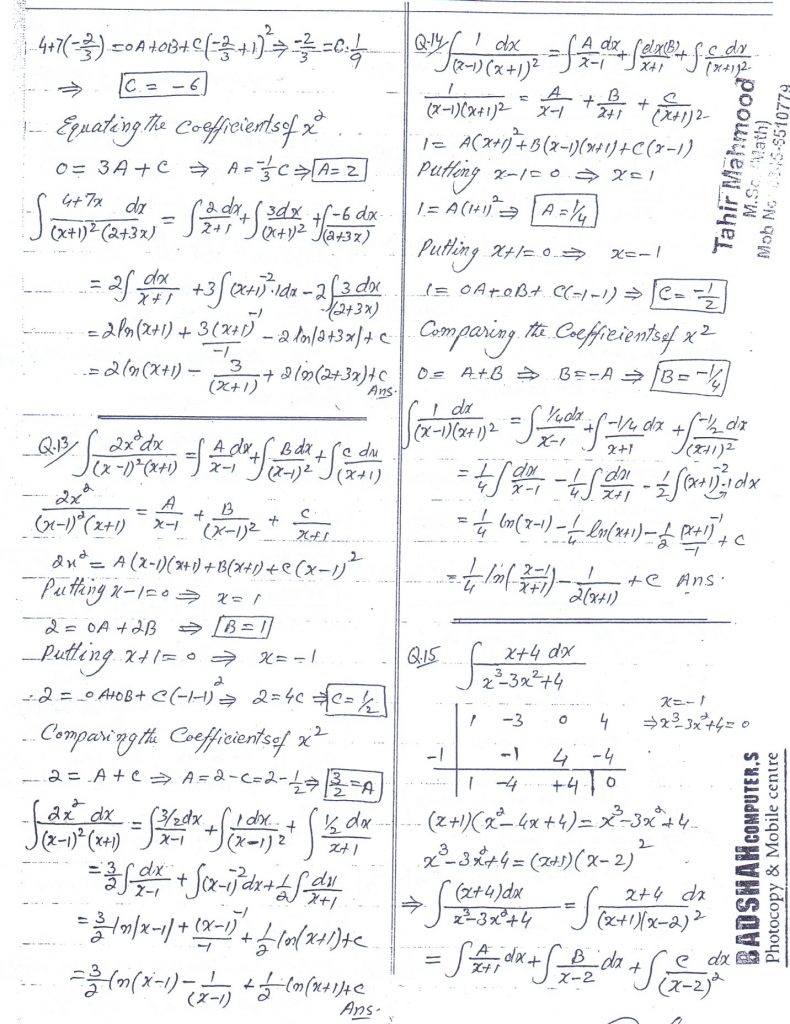 4+7(-2/3) = 0A+0B+C(-2/3+1)² ⇒ -2/3 = C·1/9
⇒ C = -6
Equating the Coefficients of x²
0 = 3A + C ⇒ A = -1/3 C ⇒ A = 2
∫ 4+7x dx/(x+1)²(2+3x) = ∫ 2 dx/x+1 + ∫ 3dx/(x+1)² + ∫ -6 dx/(2+3x)
= 2∫ dx/x+1 + 3∫(x+1)⁻²·1dx - 2∫ 3 dx/(2+3x)
= 2ln(x+1) + 3(x+1)⁻¹/-1 - 2 ln|2+3x| + c
= 2ln(x+1) - 3/(x+1) + 2ln(2+3x)+c
Ans.
Q.13 ∫ 2x²dx/(x-1)²(x+1) = ∫ A dx/x-1 + ∫ B dx/(x-1)² + ∫ c dx/(x+1)
2x²/(x-1)²(x+1) = A/x-1 + B/(x-1)² + c/x+1
2x² = A(x-1)(x+1)+B(x+1)+c(x-1)²
Putting x-1=0 ⇒ x=1
2 = 0A + 2B ⇒ B=1
Putting x+1=0 ⇒ x=-1
2 = 0A+0B+C(-1-1)² ⇒ 2=4c ⇒ C=1/2
Comparing the Coefficients of x²
2 = A+C ⇒ A=2-C=2-1/2 ⇒ 3/2=A
∫ 2x² dx/(x-1)²(x+1) = ∫ 3/2dx/x-1 + ∫ 1dx/(x-1)² + ∫ 1/2 dx/x+1
= 3/2∫ dx/x-1 + ∫(x-1)⁻²dx + 1/2∫ dx/x+1
= 3/2 ln|x-1| + (x-1)⁻¹/-1 + 1/2 ln(x+1)+c
= 3/2 ln(x-1) - 1/(x-1) + 1/2 ln(x+1)+c
Ans.
Q.14 ∫ 1 dx/(x-1)(x+1)² = ∫ A dx/x-1 + ∫ dx(B)/x+1 + ∫ c dx/(x+1)²
1/(x-1)(x+1)² = A/x-1 + B/x+1 + C/(x+1)²
1 = A(x+1)²+B(x-1)(x+1)+C(x-1)
Putting x-1=0 ⇒ x=1
1 = A(1+1)² ⇒ A=1/4
Putting x+1=0 ⇒ x=-1
1 = 0A+0B+ C(-1-1) ⇒ C=-1/2
Comparing the Coefficients of x²
0 = A+B ⇒ B=-A ⇒ B=-1/4
∫ 1 dx/(x-1)(x+1)² = ∫ 1/4dx/x-1 + ∫ -1/4 dx/x+1 + ∫ -1/2 dx/(x+1)²
= 1/4∫ dx/x-1 - 1/4∫ dx/x+1 - 1/2∫(x+1)⁻²·1 dx
= 1/4 ln(x-1) - 1/4 ln(x+1) - 1/2 (x+1)⁻¹/-1 + c
= 1/4 ln(x-1/x+1) - 1/2(x+1) + c Ans.
Q.15 ∫ x+4 dx/x³-3x²+4
x=-1
⇒ x³-3x²+4=0
1 -3 0 4
-1 -1 4 -4
1 -4 +4 0
(x+1)(x²-4x+4) = x³-3x²+4
x³-3x²+4 = (x+1)(x-2)²
⇒ ∫ (x+4)dx/x³-3x²+4 = ∫ x+4 dx/(x+1)(x-2)²
= ∫ A/x+1 dx + ∫ B/x-2 dx + ∫ C dx/(x-2)²
Tahir Mahmood
M.Sc. (Math)
Mob No
BADSHAH COMPUTER,S
Photocopy & Mobile centre